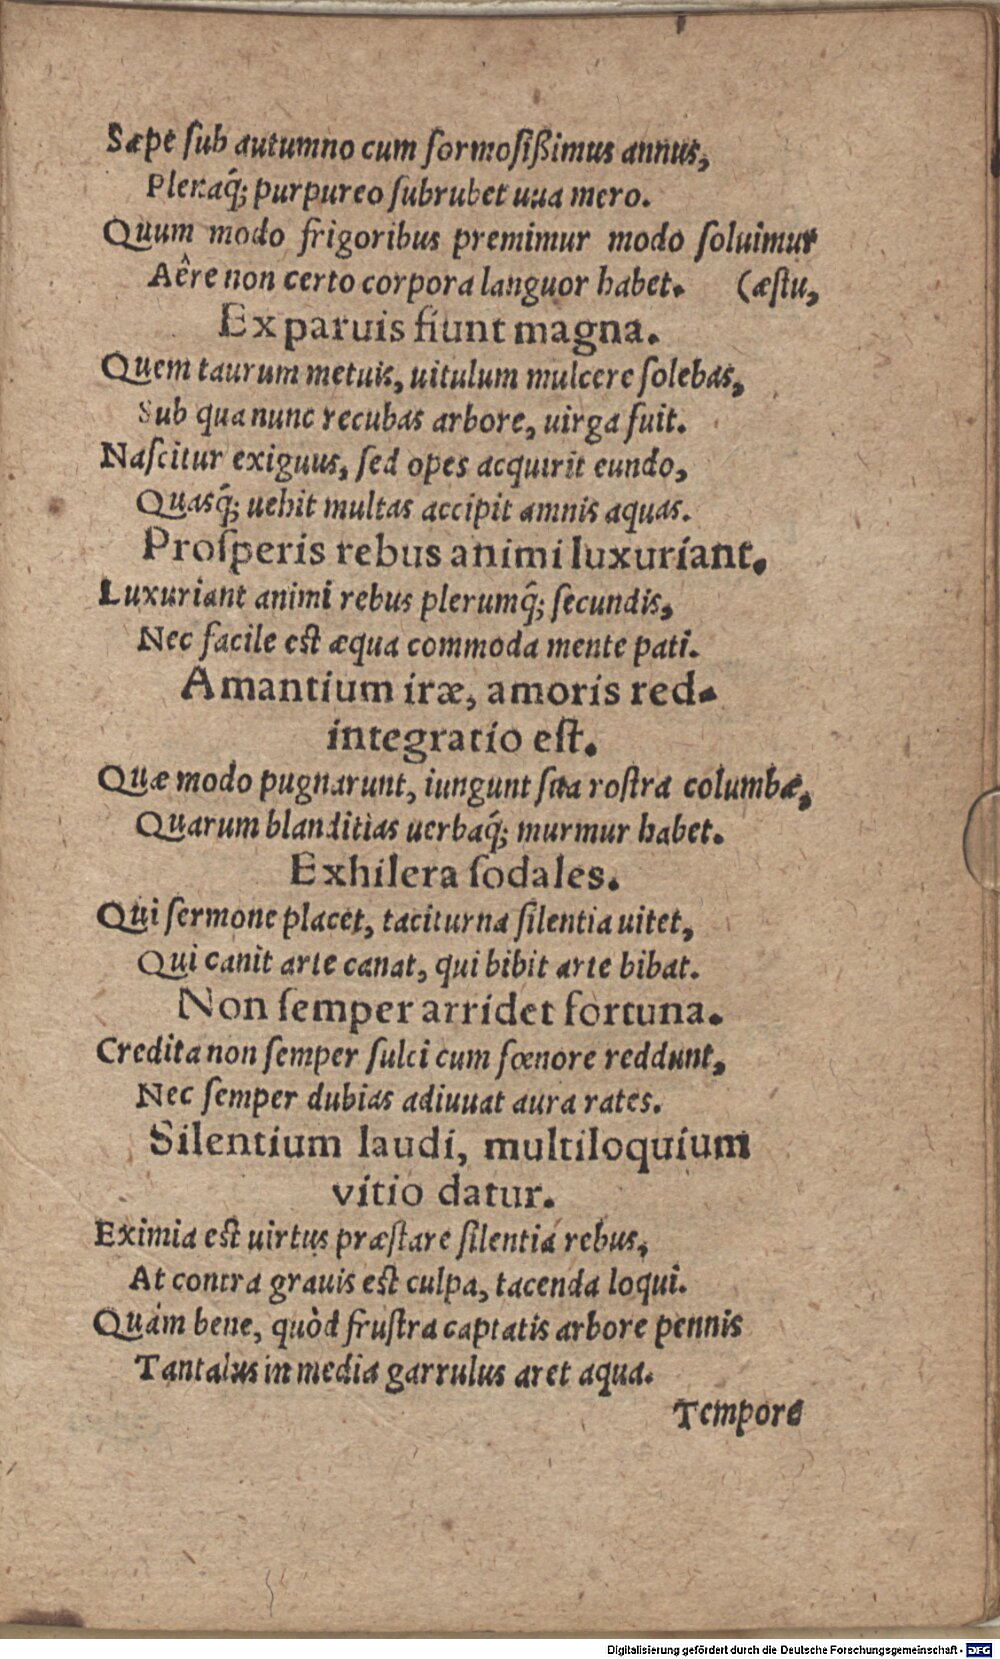 Sæpe ſub autumno cum formoſißimus annus,
Plenaq́; purpureo ſubrubet uua mero.
Quum modo frigoribus premimur modo ſoluimur
Aêre non certo corpora languor habet. (æſtu,
Ex paruis fiunt magna.
Quem taurum metuis, uitulum mulcere ſolebas,
Sub qua nunc recubas arbore, uirga fuit.
Naſcitur exiguus, ſed opes acquirit eundo,
Quasq́; uehit multas accipit amnis aquas.
Proſperis rebus animi luxuriant.
Luxuriant animi rebus plerumq́; ſecundis,
Nec facile eſt æqua commoda mente pati.
Amantium iræ, amoris red-
integratio eſt.
Quæ modo pugnarunt, iungunt ſua roſtra columbæ,
Quarum blanditias uerbaq́; murmur habet.
Exhilera ſodales.
Qui ſermone placet, taciturna ſilentia uitet,
Qui canit arte canat, qui bibit arte bibat.
Non ſemper arridet fortuna.
Credita non ſemper ſulci cum fœnore reddunt,
Nec ſemper dubias adiuuat aura rates.
Silentium laudi, multiloquium
vitio datur.
Eximia eſt uirtus præſtare ſilentia rebus,
At contra grauis eſt culpa, tacenda loqui.
Quàm bene, quòd fruſtra captatis arbore pennis
Tantalus in media garrulus aret aqua.
Tempore
Digitalisierung gefördert durch die Deutsche Forschungsgemeinschaft - DFG